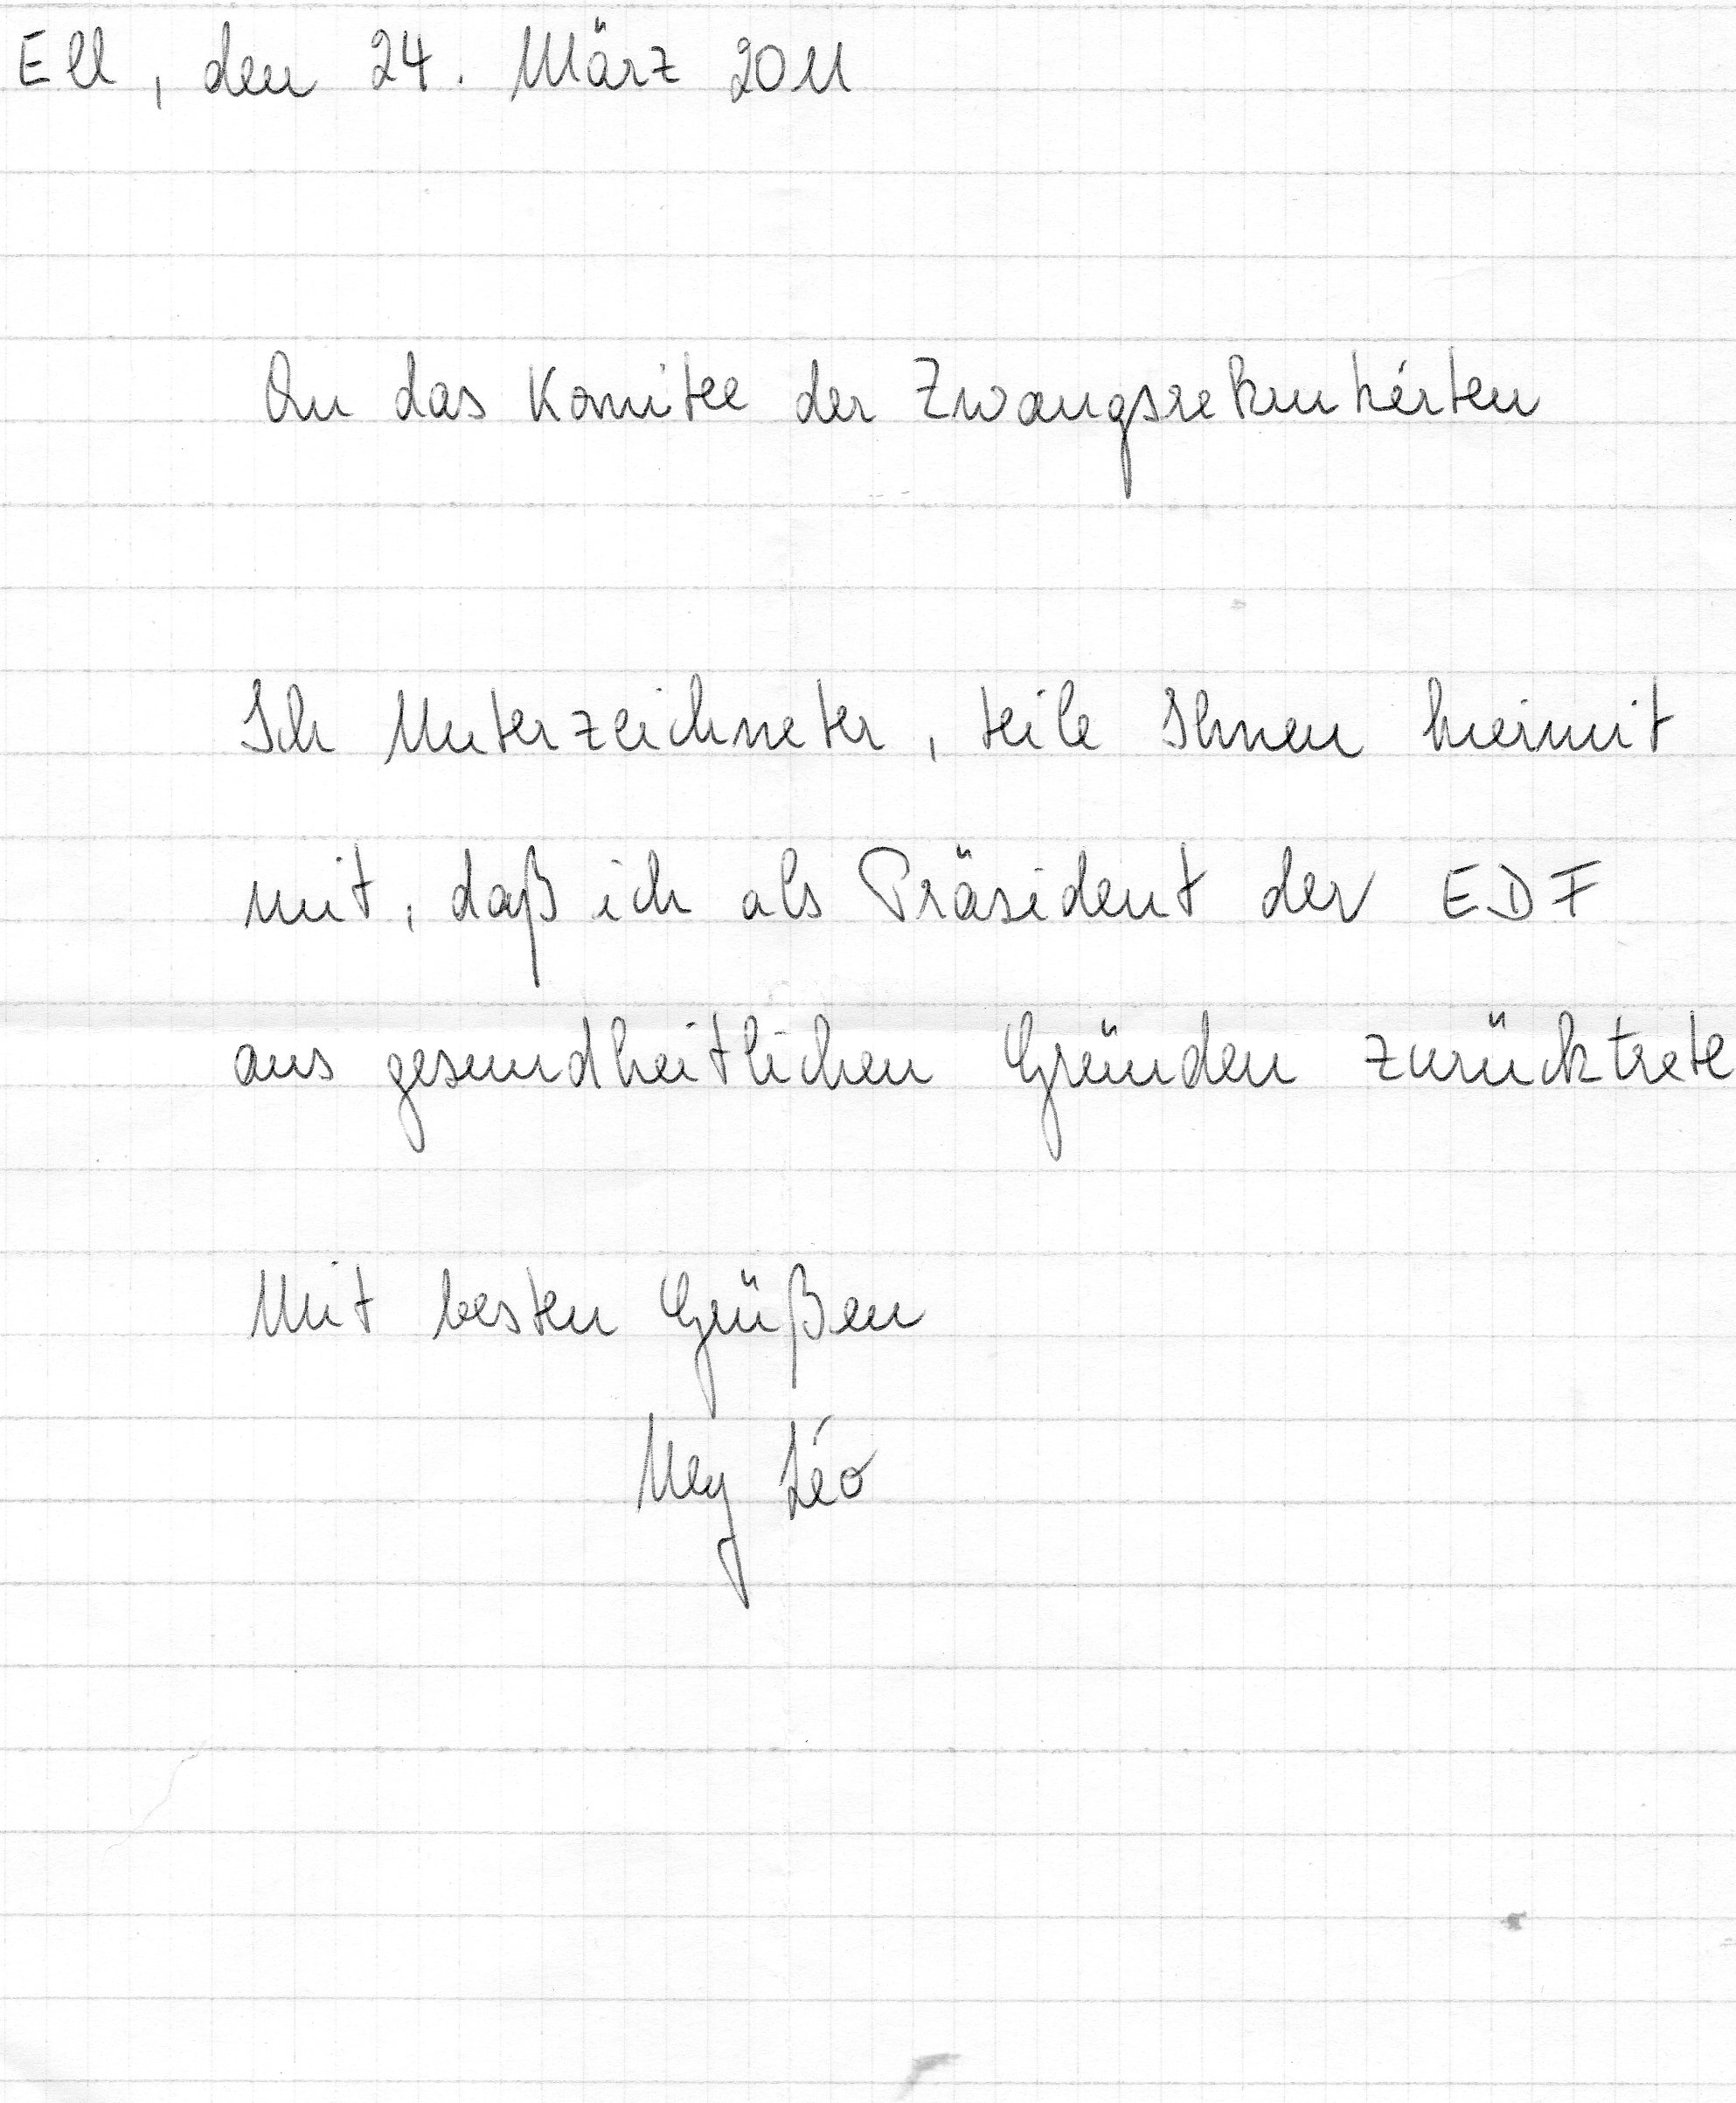 Ell, den 24. März 2011
An das Komitee der Zwangsrekrutierten
Ich Unterzeichneter, teile Ihnen hiermit
mit, daß ich als Präsident der EDF
aus gesundheitlichen Gründen zurücktrete
Mit besten Grüßen
Mey Léo